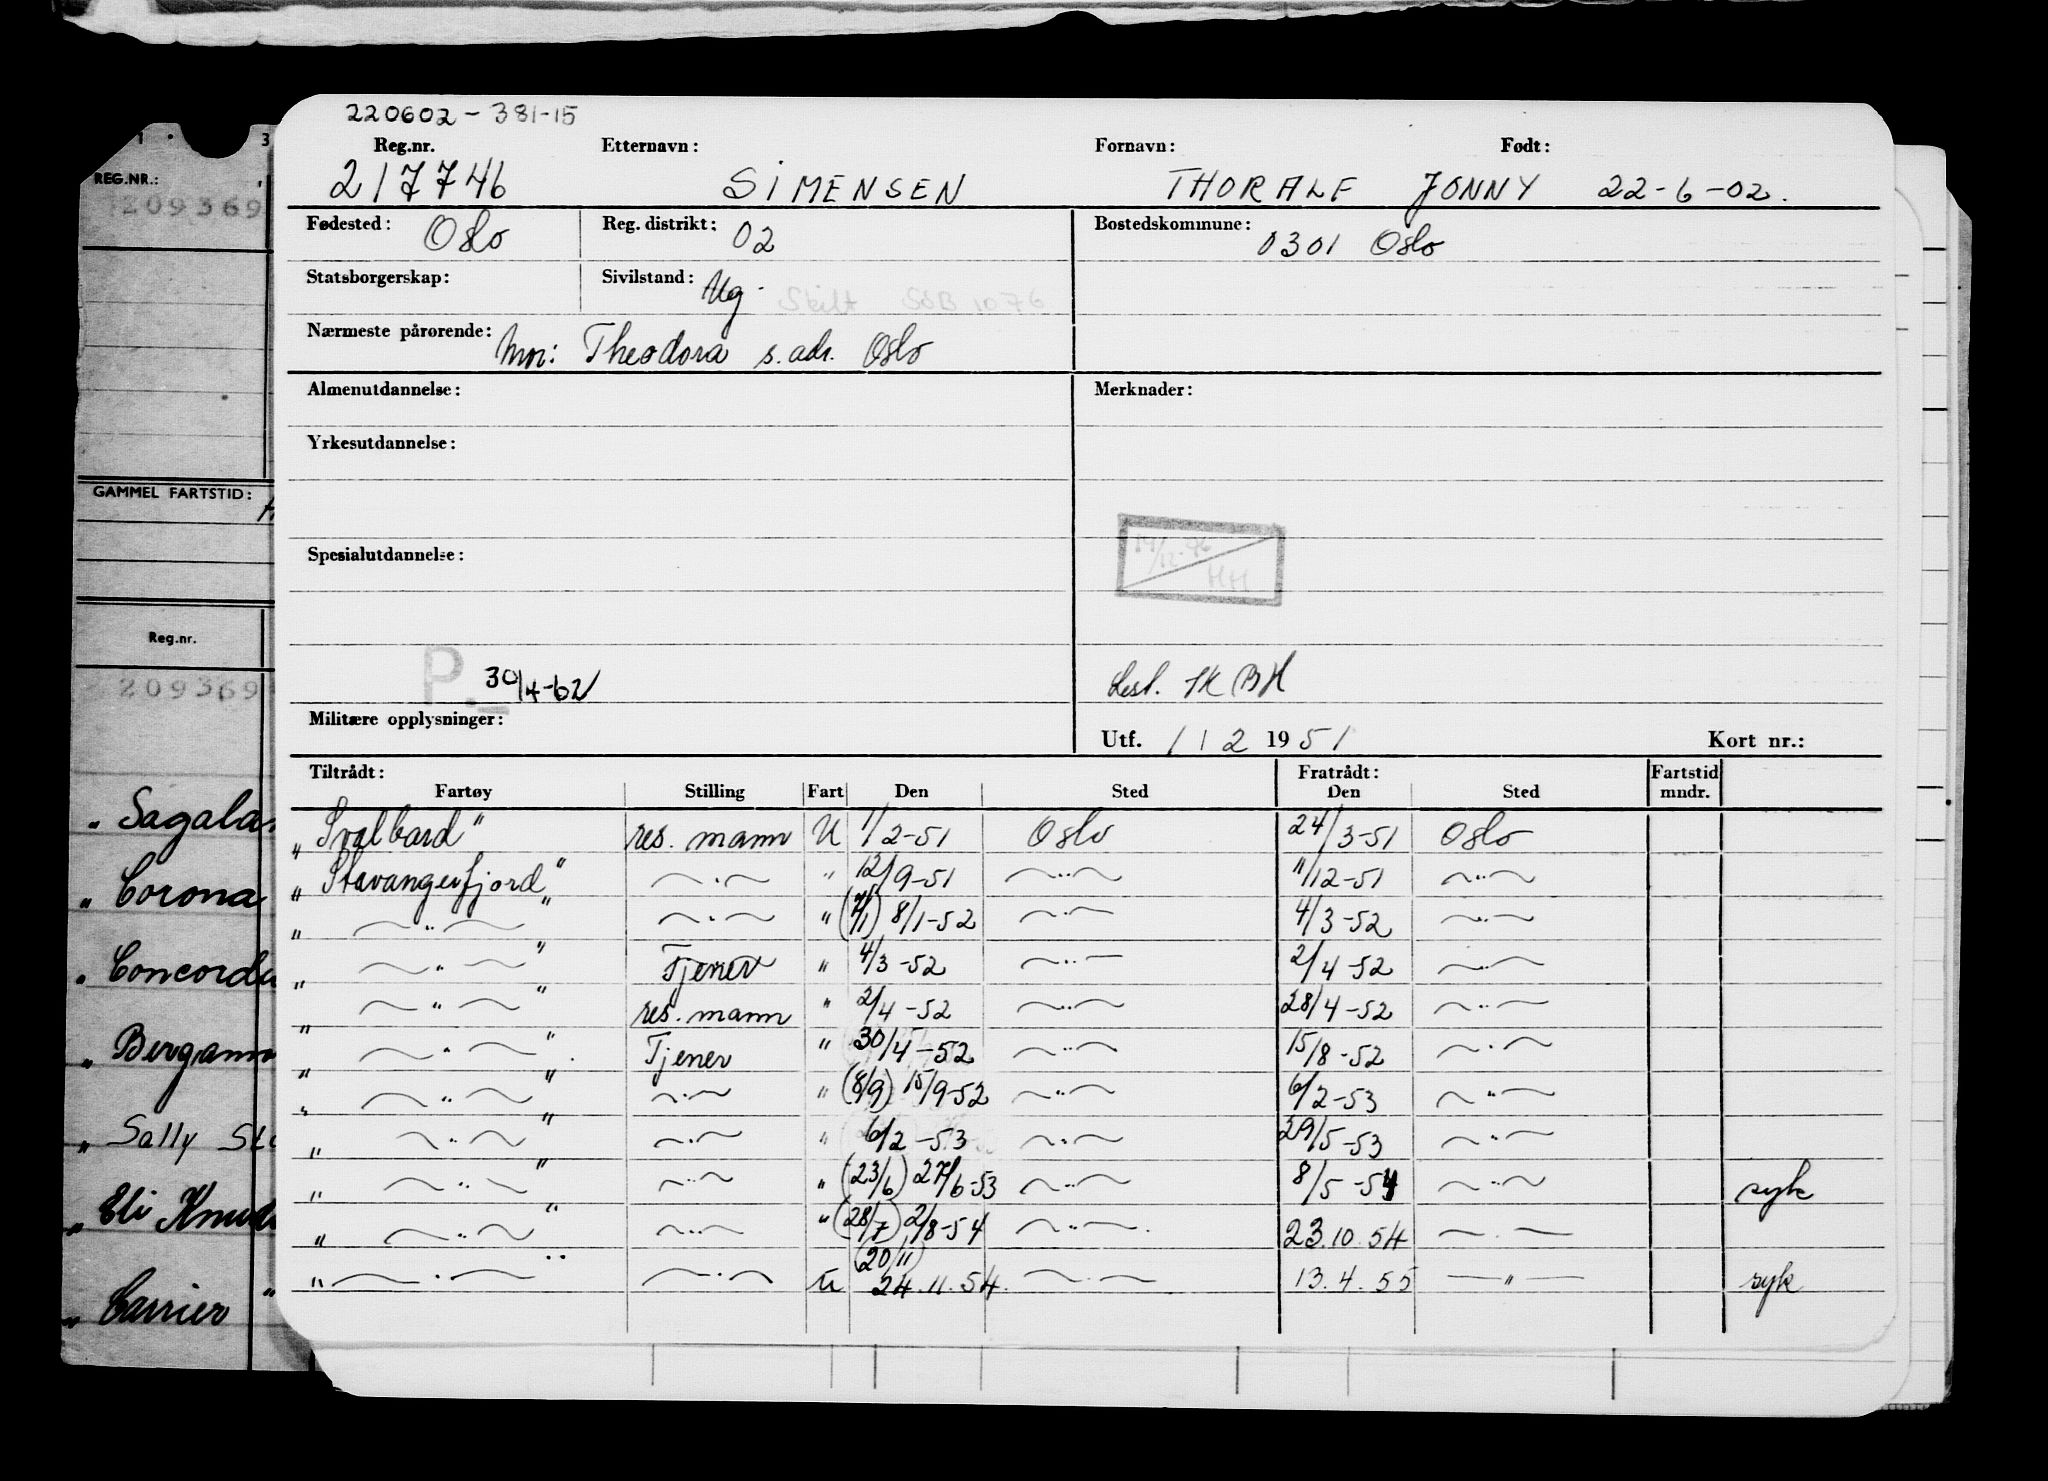 220602-381-15
Reg.nr. Etternavn: Fornavn: Født:
217746 SIMENSEN THORALF JONNY 22-6-02.
Fødested: Oslo Reg. distrikt: 02 Bostedskommune: 0301 Oslo
Statsborgerskap: Sivilstand: Ug. Skilt SØB 1076
Nærmeste pårørende: Mor: Theodora s. adr. Oslo
Almenutdannelse: Merknader:
Yrkesutdannelse:
Spesialutdannelse:
HH
P. 30/4-62
BH
Militære opplysninger:
Utf. 1 / 2 1951 Kort nr.:
Tiltrådt: Fratrådt: Fartstid
Fartøy Stilling Fart Den Sted Den Sted mndr.
„ Svalbard " res. mann U 1/2-51 Oslo 24/3-51 Oslo
„ Stavangerfjord " —·— " 12/9-51 —"— 11/12-51 —"—
„ —"— " —·— " (7/1) 8/1-52 —·— 4/3-52 —"—
„ —"— " Tjener " 4/3-52 —"— 2/4-52 —"—
„ —"— " res. mann " 2/4-52 —"— 28/4-52 —"—
„ —"— " Tjener " 30/4-52 —"— 15/8-52 —·—
„ —"— " —·— " (8/9) 15/9-52 —"— 6/2-53 —"—
„ —"— " —·— " 6/2-53 —"— 29/5-53 —"—
„ —"— " —"— " (23/6) 27/6-53 —"— 8/5-54 —"— syk
„ —"— " —"— " (28/7) 2/8-54 —"— 23.10.54 —·—
„ —·— " —·— U (20/11) 24.11.54. —·— 13.4.55 —"— syk
1 3
REG.NR.:
209369
GAMMEL FARTSTID:
Reg.nr.
209369
„ Sagala
„ Corona
„ Concordi
„ Bergamo
„ Sally St
„ Eli Knud
„ Carrier "